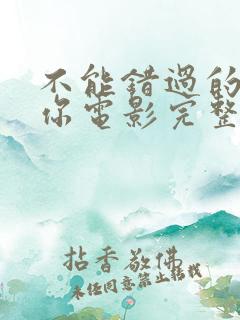 不能錯過的
你電影完整
拈香敬佛
未经同意禁止转载